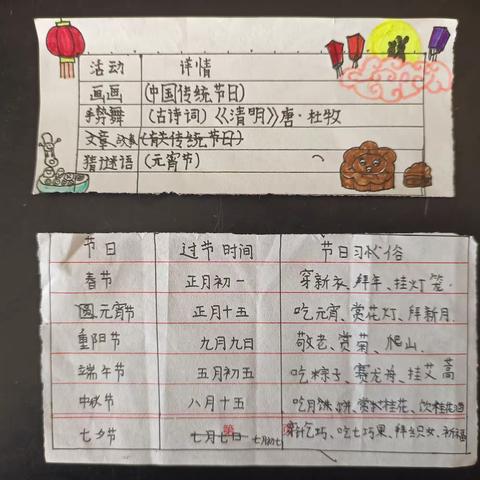 活动 详情
画画 (中国传统节日)
手势舞 (古诗词)《清明》唐·杜牧
文章 (有关传统节日)
猜谜语 (元宵节)
节日 过节时间 节日习俗
春节 正月初一 穿新衣、拜年、挂灯笼.
元宵节 正月十五 吃元宵、赏花灯、拜新月.
重阳节 九月九日 敬老、赏菊、爬山.
端午节 五月初五 吃粽子、赛龙舟、挂艾蒿
中秋节 八月十五 吃月饼、赏桂花、饮桂花酒
七夕节 七月七日 七月初七 穿针乞巧、吃七巧果、拜织女、祈福